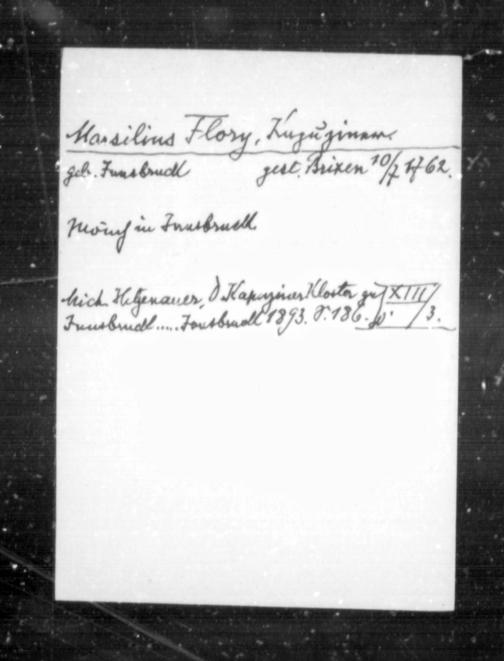 Marsilius Flory, Kapuziner
geb. Innsbruck gest. Brixen 10/7 1762.
Mönch in Innsbruck
Mich. Hetzenauer, D. Kapuziner Kloster zu XIII
Innsbruck ..... Innsbruck 1893. S. 186. /3.